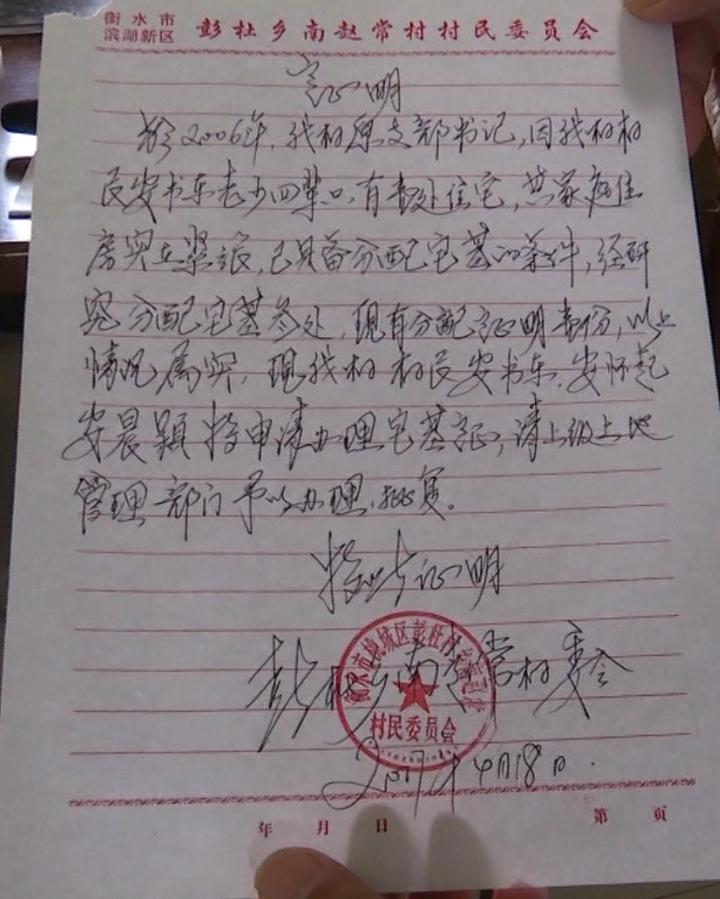 衡水市
滨湖新区 彭杜乡南赵常村村民委员会
证明
於2006年,我村原支部书记,因我村村
民安书东老少四辈口,有壹处住宅,其家庭住
房实在紧张,已具备分配宅基的条件,经研
究分配宅基叁处,现有分配证明壹份,以上
情况属实,现我村村民安书东.安怀起
安晨颖特申请办理宅基证,请上级土地
管理部门予以办理.批复。
特此证明
彭杜乡南赵常村委会
衡水市桃城区彭杜村乡南赵常
村民委员会
2017年4月18日.
年 月 日 第 页